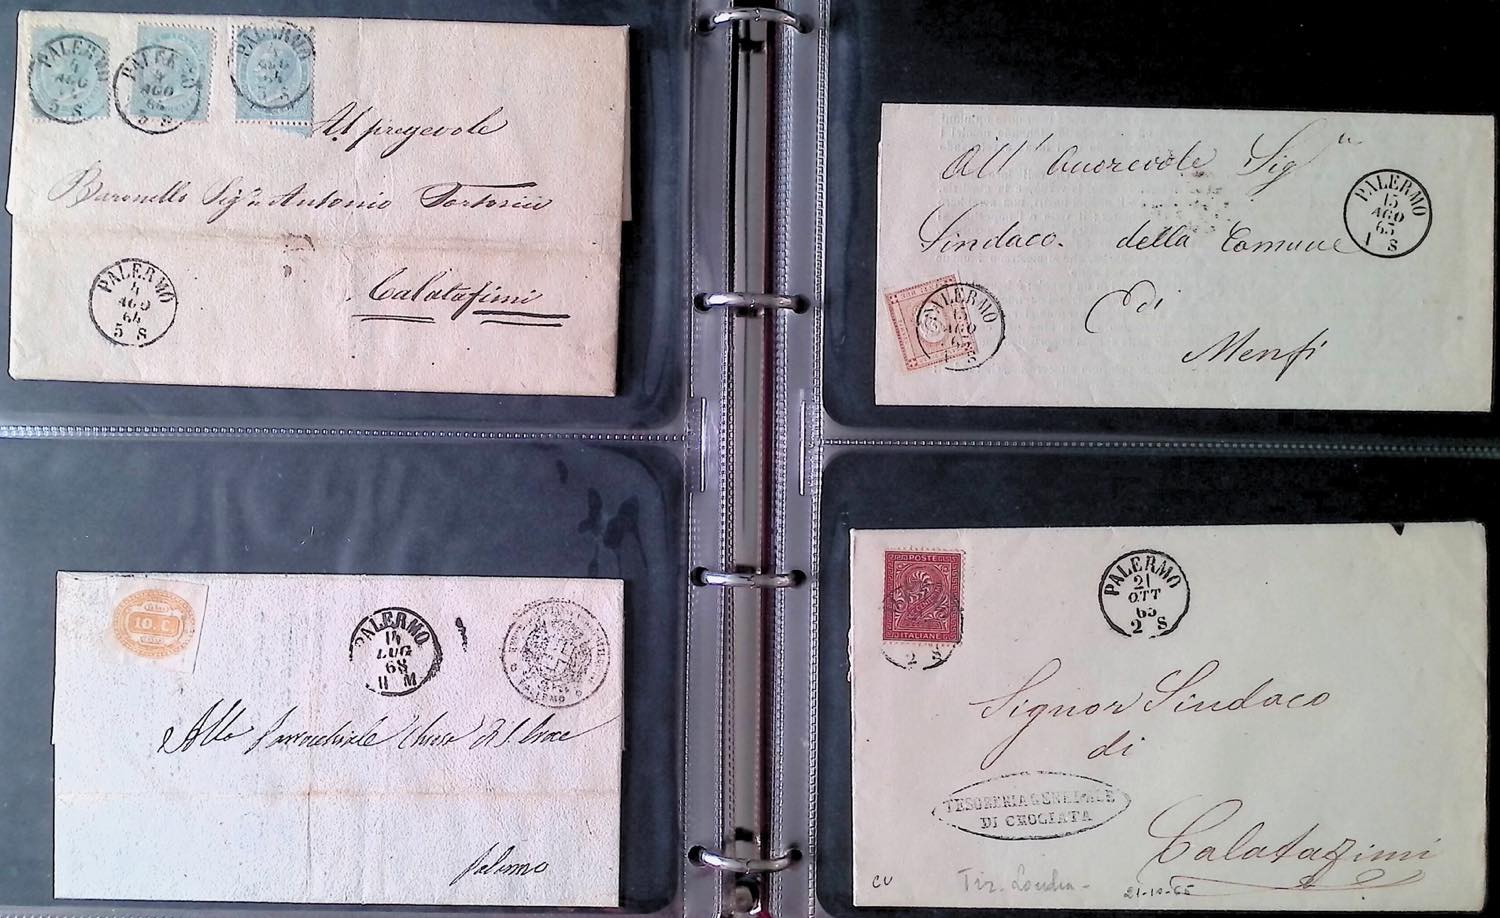 PALERMO
4
AGO
5 S
PALERMO
4
AGO
64
5 S
PALERMO
4
AGO
64
5 S
Al pregevole
Baronello Sigr Antonio Tortorici
Calatafimi
PALERMO
4
AGO
64
5 S
All' Onorevole Sigr
Sindaco della Comune
di
Menfi
PALERMO
15
AGO
65
1 S
PALERMO
15
AGO
65
S
10. C
PALERMO
14
LUG
68
11 M
PALERMO
Alla Parrocchiale Chiesa di S. Croce
Palermo
POSTE
ITALIANE
2 S
PALERMO
21
OTT
65
2 S
Signor Sindaco
di
Calatafimi
TESORERIA GENERALE
DI CROCIATA
CV
Tir. Londra -
21-10-65